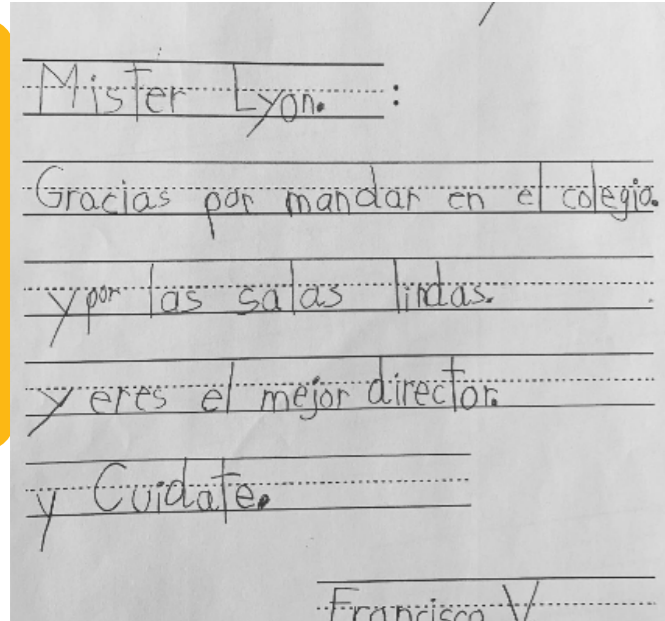 Mister Lyon. :
Gracias por mandar en el colegio.
y por las salas lindas.
y eres el mejor director.
y Cuidate.
Francisco V